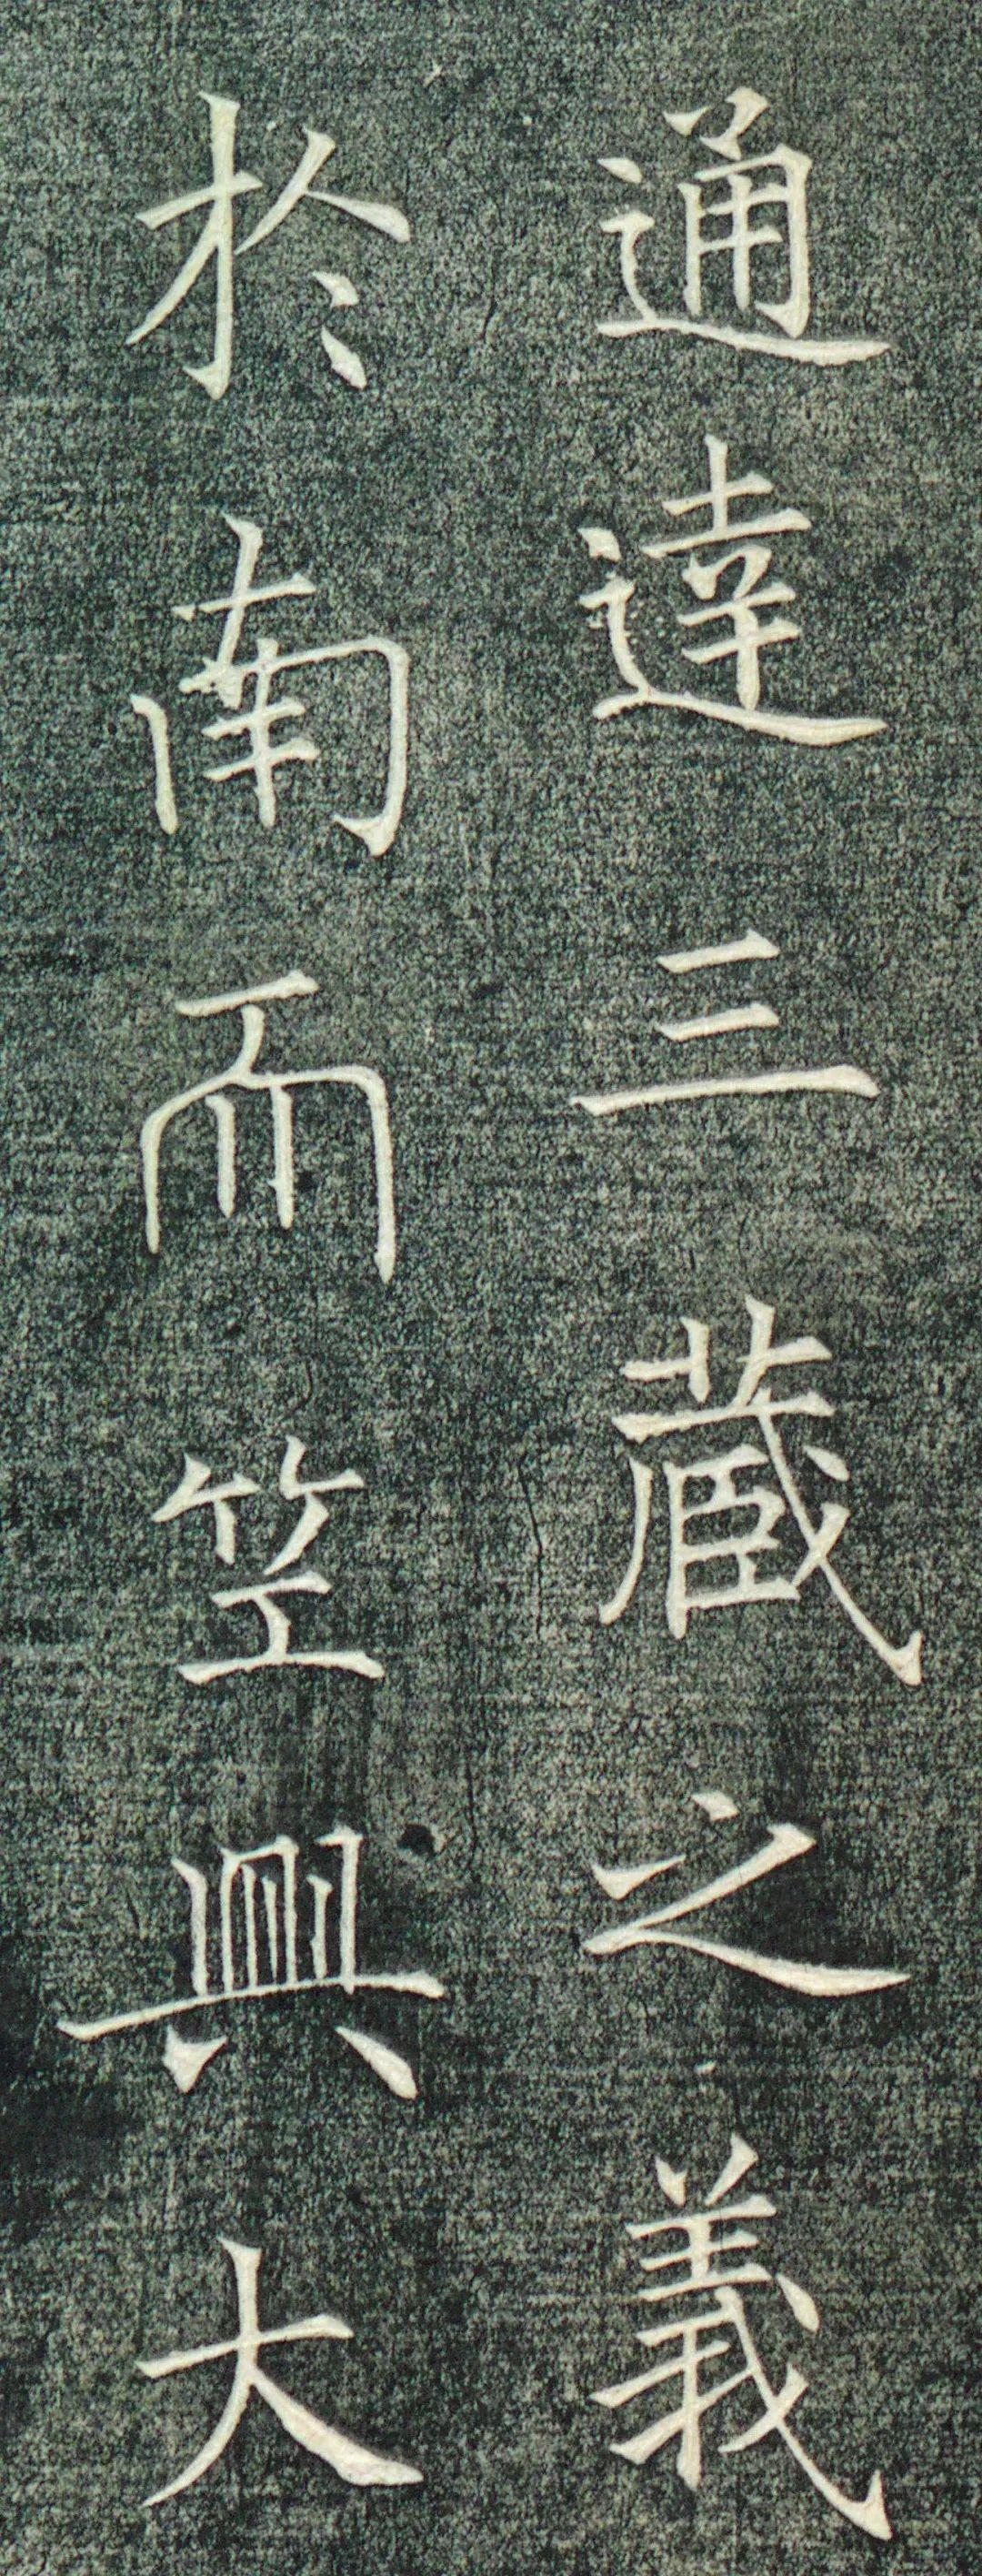 通達三藏之義
於南而笁興大